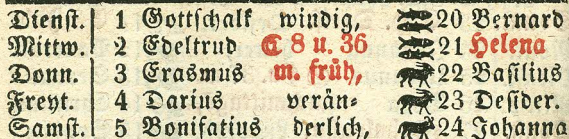 Dienſt. 1 Gottſchalk windig, 20 Bernard
Mittw. 2 Edeltrud ☾ 8 u. 36 21 Helena
Donn. 3 Erasmus m. früh, 22 Baſilius
Freyt. 4 Darius verän- 23 Deſider.
Samſt. 5 Bonifatius derlich, 24 Johanna